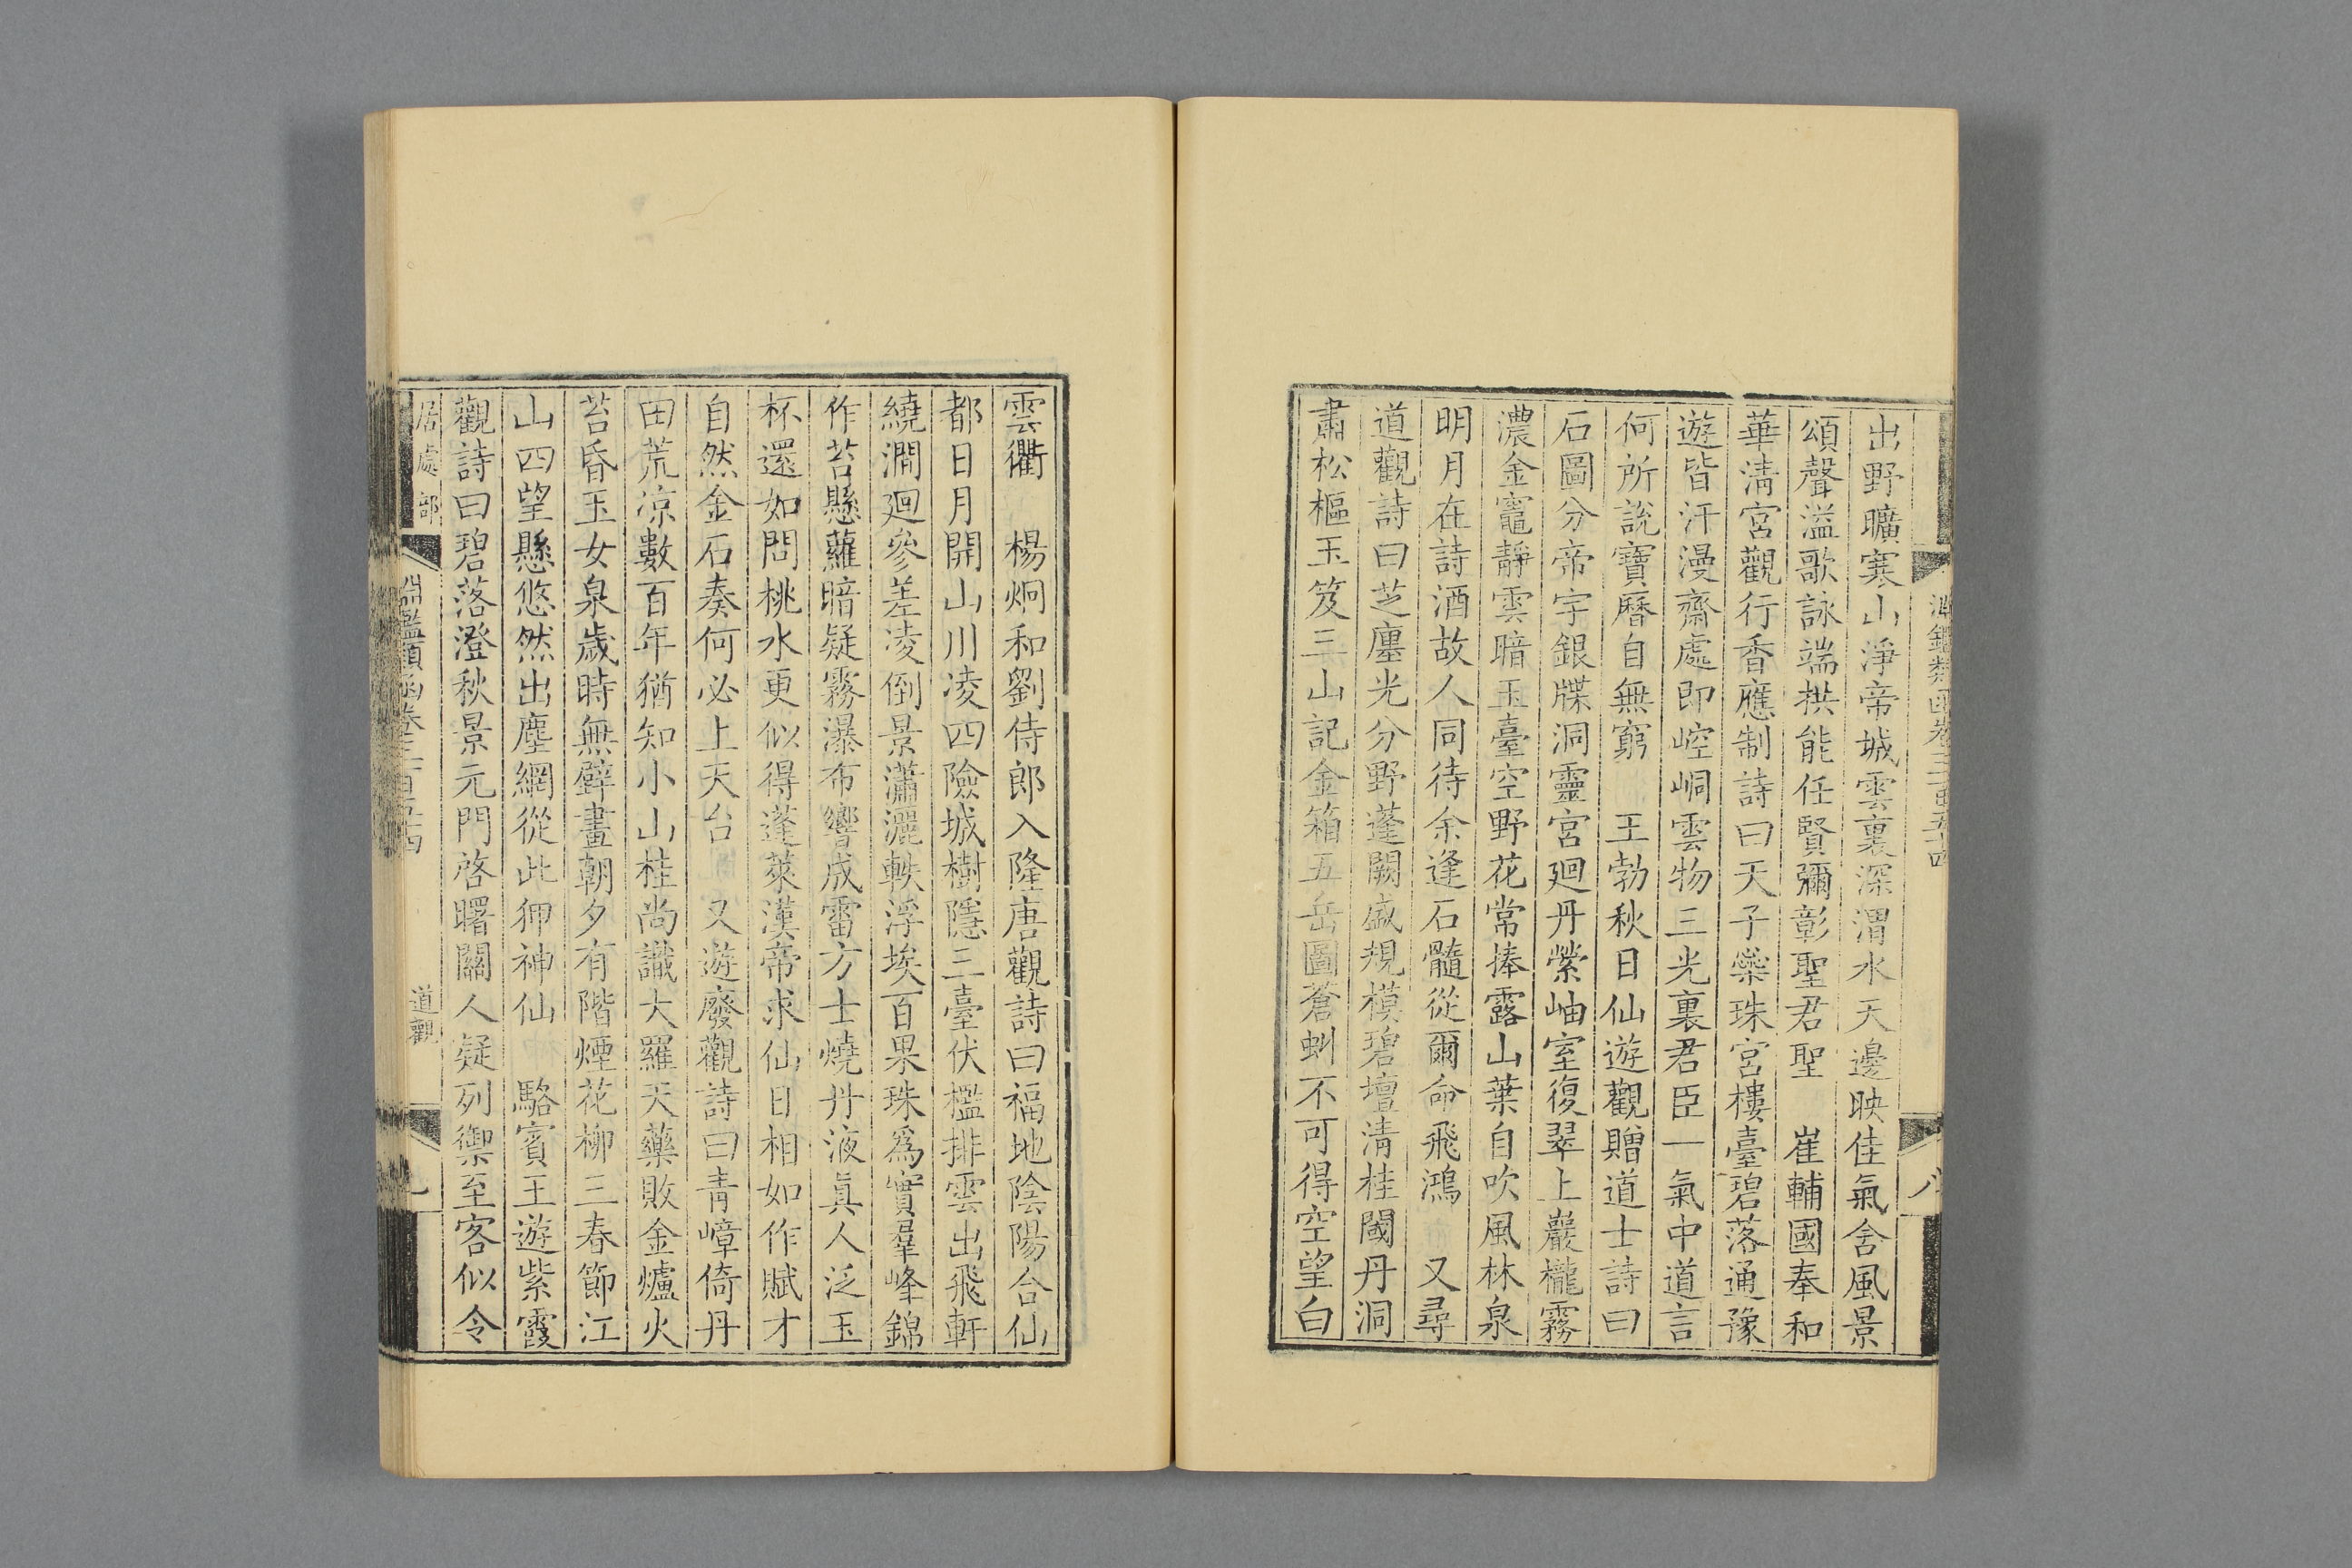 淵鑑類函卷三百五十四
八
出野曠寒山淨帝城雲裏深渭水天邊映佳氣含風景
頌聲溢歌詠端拱能任賢彌彰聖君聖　崔輔國奉和
華清宮觀行香應制詩曰天子蘂珠宮樓臺碧落通豫
遊皆汗漫齋處即崆峒雲物三光裏君臣一氣中道言
何所說寶曆自無窮　王勃秋日仙遊觀贈道士詩曰
石圖分帝宇銀牒洞靈宮廻丹縈岫室復翠上巖櫳霧
濃金竈靜雲暗玉臺空野花常捧露山葉自吹風林泉
明月在詩酒故人同待余逢石髓從爾命飛鴻　又尋
道觀詩曰芝廛光分野蓬闕盛規模碧壇清桂閾丹洞
肅松樞玉笈三山記金箱五岳圖蒼虯不可得空望白
雲衢　楊炯和劉侍郎入隆唐觀詩曰福地陰陽合仙
都日月開山川凌四險城樹隱三臺伏檻排雲出飛軒
繞澗廻參差凌倒景瀟灑軼浮埃百果珠爲實羣峰錦
作苔懸蘿暗疑霧瀑布響成雷方士燒丹液眞人泛玉
杯還如問桃水更似得蓬萊漢帝求仙日相如作賦才
自然金石奏何必上天台　又遊廢觀詩曰青嶂倚丹
田荒凉數百年猶知小山桂尚識大羅天藥敗金爐火
苔昏玉女泉歲時無壁畫朝夕有階煙花柳三春節江
山四望懸悠然出塵網從此狎神仙　駱賓王遊紫霞
觀詩曰碧落澄秋景元門啓曙關人疑列禦至客似令
居處部
淵鑑類函卷三百五十四
道觀